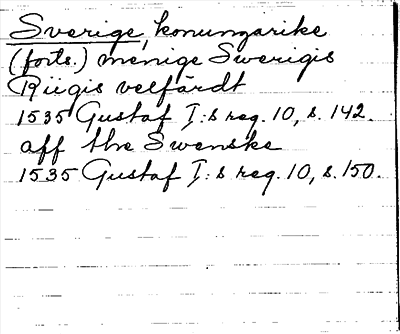 Sverige, konungarike
(forts.) menige Swerigis
Riigis velfärdt
1535 Gustaf I:s reg. 10, s. 142.
aff the Swenske
1535 Gustaf I:s reg. 10, s. 150.